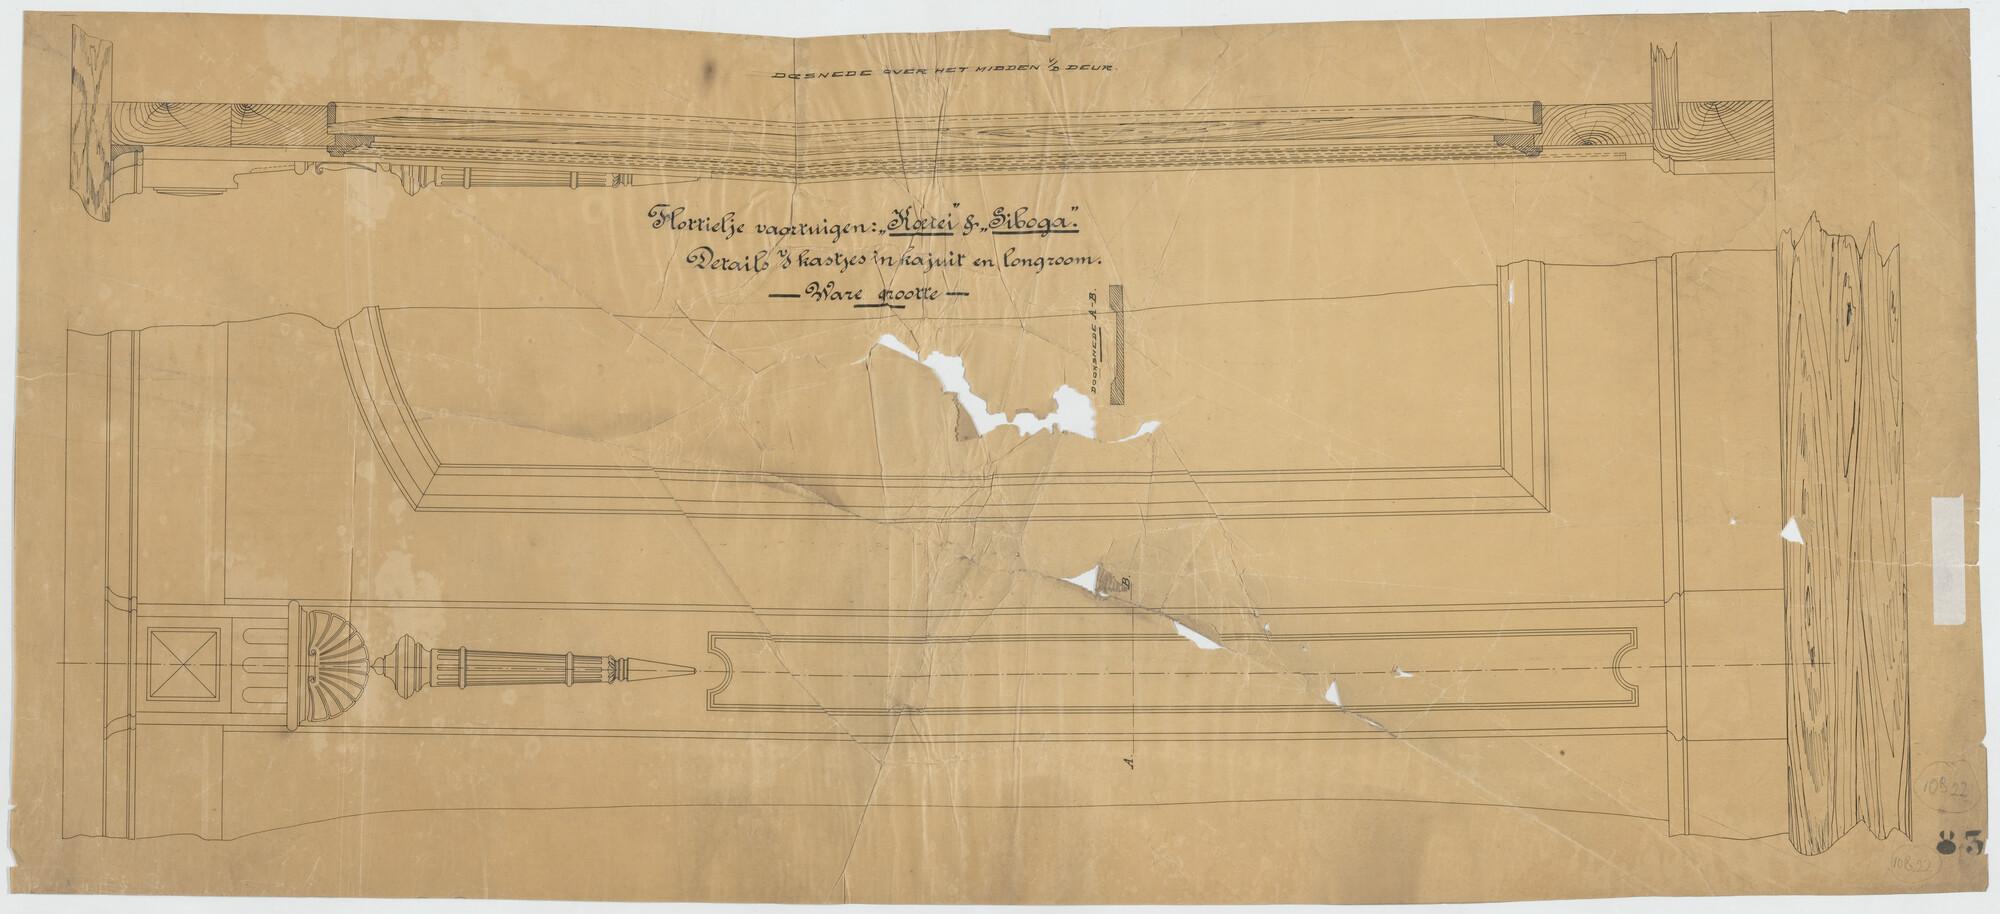 DOSNEDE OVER HET MIDDEN V/D DEUR.
Flottielje vaartuigen: „Koetei" & „Siboga".
Details v/d kastjes in kajuit en longroom.
— Ware grootte —
DOORSNEDE A-B.
B.
A.
10B22
83
10B22